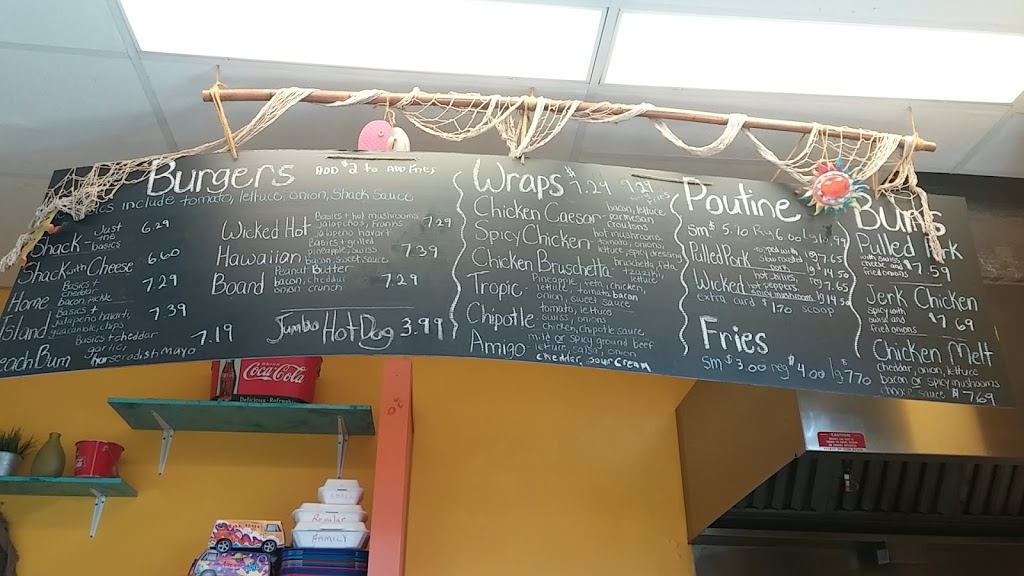 Burgers ADD $2 to ADD Fries
include tomato, lettuce, onion, Shack Sauce
Shack - Just the basics 6.29
Shack with Cheese 6.60
Home Basics + cheddar bacon, pickle 7.29
Island Basics + jalapeno havarti, guacamole, chips 7.39
each Bum Basics + cheddar garlic horseradish mayo 7.19
Wicked Hot Basics + hot mushrooms jalapenos, franks jalapeno havarti 7.29
Hawaiian Basics + grilled pineapple, swiss sweet sauce 7.39
Board Peanut Butter bacon, cheddar onion crunch 7.29
Jumbo Hot Dog 3.99
Wraps $7.24 9.24
Chicken Caesar bacon, lettuce parmesan croutons
Spicy Chicken hot mushrooms, tomato, onions spicy dressing
Chicken Bruschetta
Tropic - pineapple, feta, chicken, lettuce, tomato, bacon onion, sweet sauce
Chipotle tomato, lettuce swiss, onions chicken, chipotle sauce
Amigo mild or spicy ground beef lettuce, salsa, onion cheddar, sour cream
Poutine
sm $5.10 Reg 6.00 lg
Pulled Pork slow roasted reg 7.65 lg $14.50
Wicked hot peppers hot mushrooms reg 7.65 lg 14.50
extra curd $1.70 scoop
Fries
sm $3.00 reg $4.00 lg $7.70
Bums
Pulled Pork
fried onions $7.59
Jerk Chicken
Spicy with swiss and fried onions
$7.69
Chicken Melt
cheddar, onion, lettuce
bacon or spicy mushrooms
sauce $7.69
Coca-Cola
Delicious · Refreshing
Regular
FAMILY
CAUTION